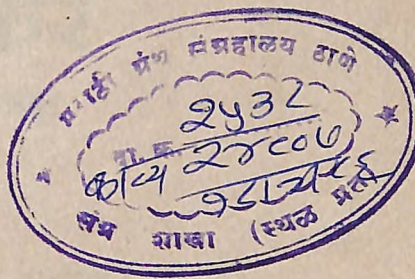 मराठी ग्रंथ संग्रहालय ठाणे
२५३८
काव्य २४८०७
शाखा (स्थळ प्रत)